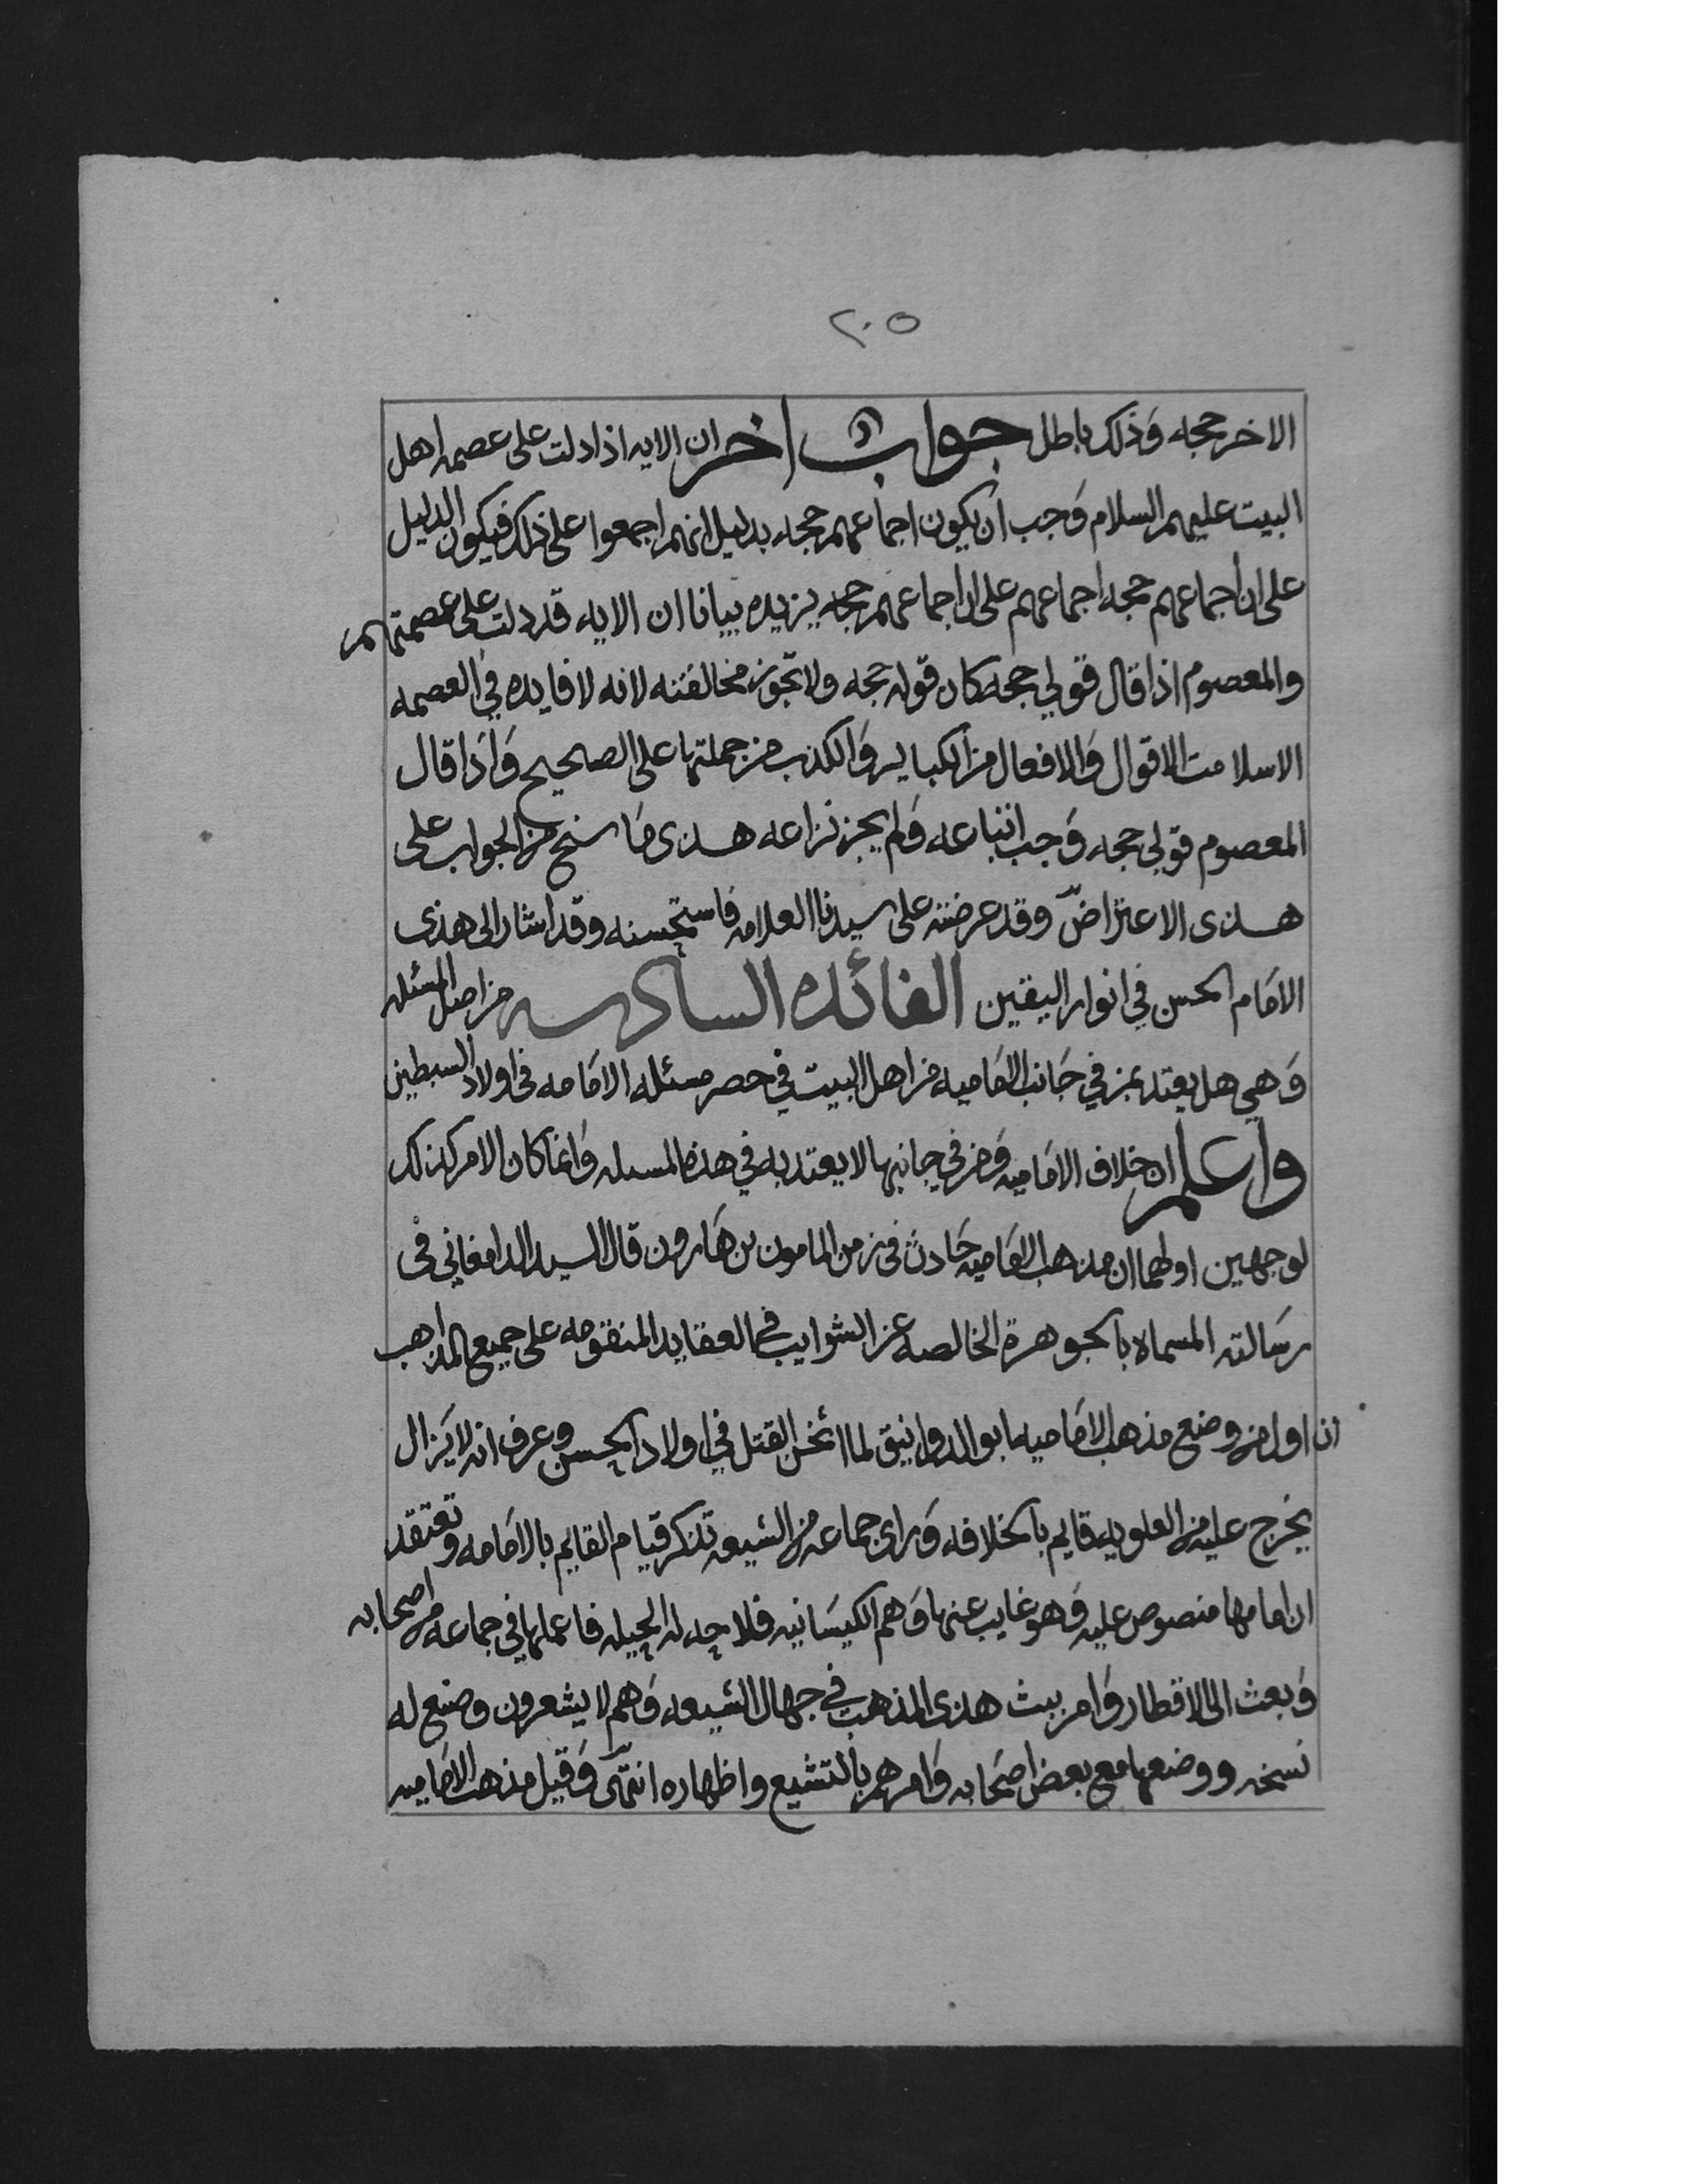 ٢٠٥
الاخر حجه وَذلك باطل جواب اخر ان الايه اذا دلت على عصمه اهل
البيت عليهم السلام وَجب ان يكون اجماعهم حجه بدليل انهم اجمعوا على ذلك فيكون الدليل
على ان اجماعهم حجه اجماعهم على ان اجماعهم حجه يزيده بيانا ان الايه قد دلت على عصمتهم
والمعصوم اذا قال قولي حجه كان قوله حجه ولا تجوز مخالفته لانه لا فايده في العصمه
الا سلامت الاقوال وَالافعال من الكباير وَالكذب من جملتها على الصحيح وَاذا قال
المعصوم قولي حجه وَجب اتباعه وَلم يجز نزاعه هذى مَا سنح من الجواب على
هذى الاعتراض وقد عرضته على سيدنا العلامه فاستحسنه وقد اشار الى هذى
الامَام الحسن في انوار اليقين الفائده السادسه من اصل المسئله
وَهي هل يعتد بمن في جَانب الامَاميه من اهل البيت في حصر مسئله الامَامه في اولاد السبطين
واعلم ان خلاف الامَاميه وَمن في جانبها لا يعتد به في هذه المسىله وَانما كان الامر كذلك
لوجهين اولهما ان مذهب الامَاميه حَادث في زمن المامون بن هَارون قال السيد الدامغاني في
رسَالته المسماه بالجوهرة الخالصه عن الشوايب في العقايد المنقومه على جميع المذاهب
ان اول من وضع مذهب الامَاميه ابو الدوانيق لما اثخن القتل في اولاد الحسن وعرف انه لا يَزال
يخرج عليه من العلويه قايم بالخلافه وَراى جماعه من الشيعه تذكر قيام القايم بالامَامه وتعتقد
ان امامها منصوص عليه وَهو غايب عنها وَهم الكيسَانيه فلا جد له الحيله فاعملها في جماعه من اصحابه
وَبعث الى الاقطار وَامر ببث هذى المذهب في جهال الشيعه وَهم لا يشعرون وصنع له
نسخه ووضعها مع بعض اصحَابه وَامرهم بالتشيع واظهاره انتهى وَقيل مذهب الامَاميه